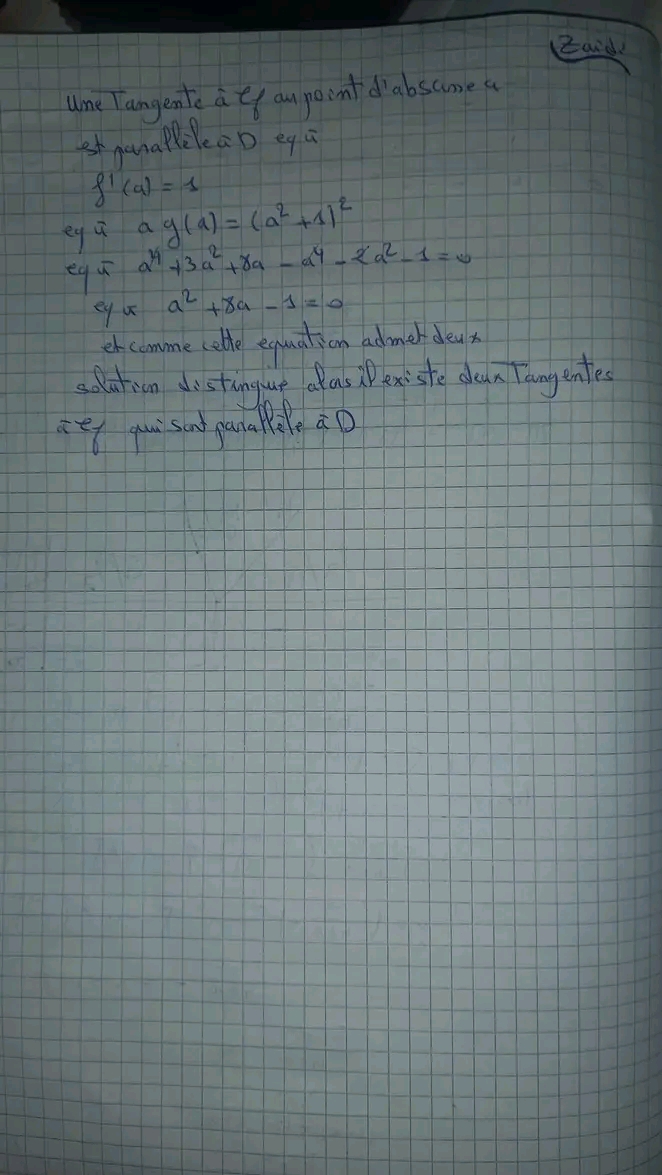 Zaide
Une Tangente à Cf au point d'abscisse a
est parallèle à D eq ü
f'(a) = 1
eq ü a g(a) = (a² + 1)²
eq ü a⁴ + 3a² + 8a - a⁴ - 2a² - 1 = 0
eq ü a² + 8a - 1 = 0
et comme cette equation admet deux
solution distingue alors il existe deux Tangentes
à Cf qui sont parallèle à D